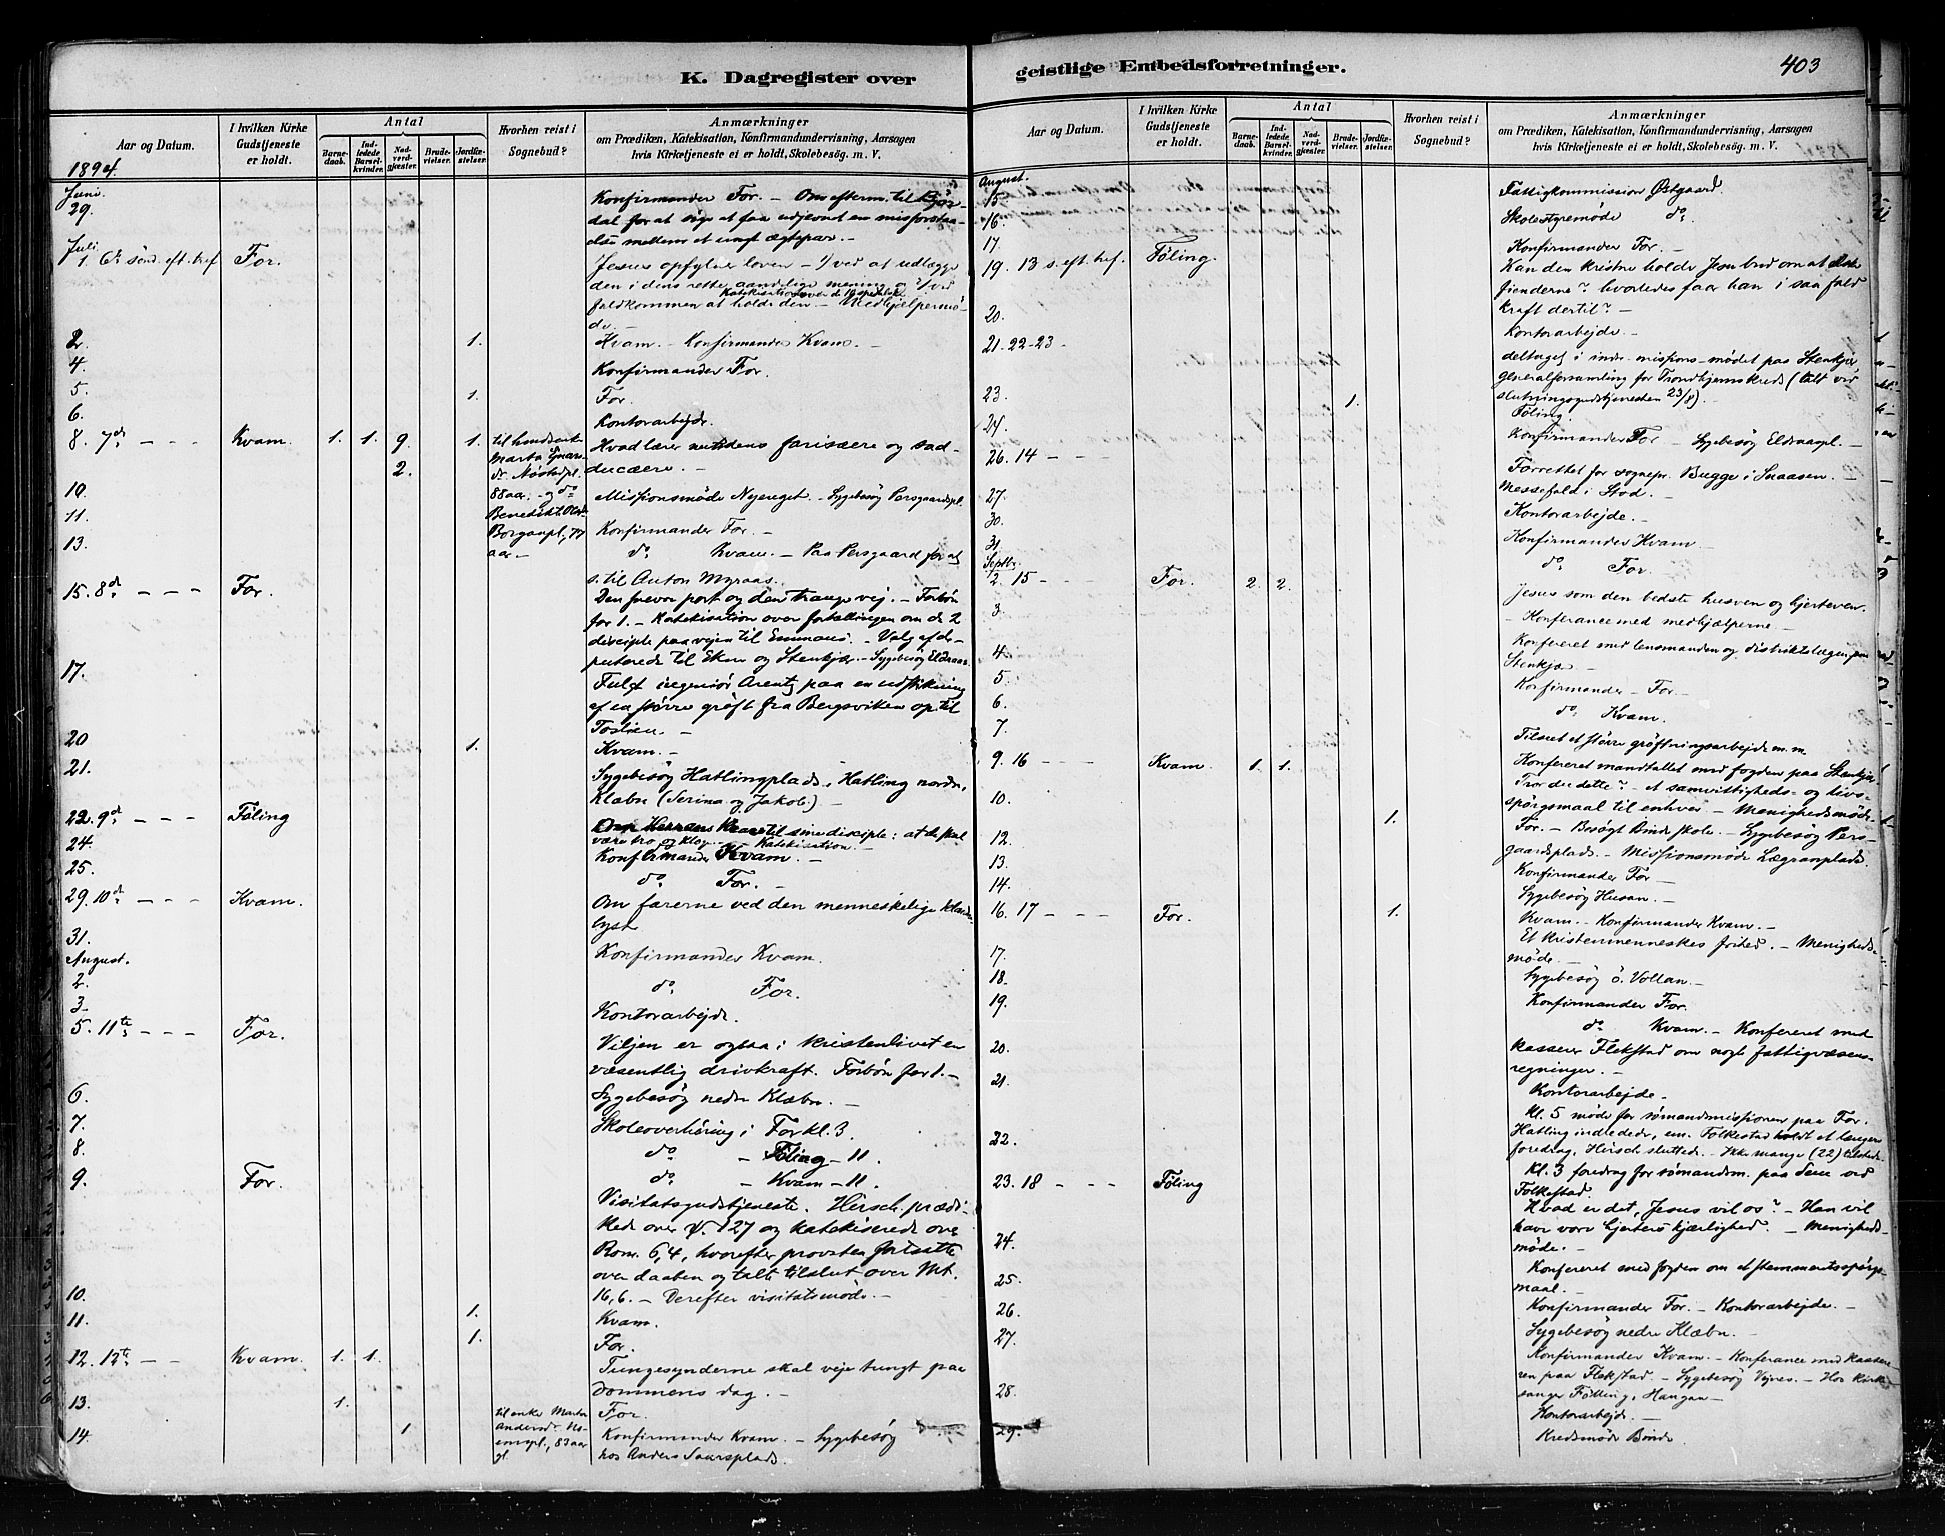 K. Dagregister over
Aar og Datum.
I hvilken Kirke Gudstjeneste er holdt.
Antal
Barnedaab.
Indledede Barselkvinder.
Nadverdgjester.
Brudevielser.
Jordfæstelser.
Hvorhen reist i Sognebud?
Anmærkninger
om Prædiken, Katekisation, Konfirmandundervisning, Aarsagen
hvis Kirketjeneste ei er holdt, Skolebesøg. m. V.
1894.
Juni.
29. Konfirmander For. – Om efterm. til
dal for at søge at faa udjevnet en misforstaa-
else mellem et ungt ægtepar. –
Juli
1. 6te sönd. eft. tref. For. Jesus opfylder loven – 1) ved at udlægge
den i dens rette aandelige mening og 2) ved
Katekisation over de 10
fuldkommen at holde den – Medhjelpermö-
de. –
2. 1. Kvam. – Konfirmander Kvam. –
4. Konfirmander For.
5. 1. For.
6. Kontorarbejde.
8. 7de – – – Kvam. 1. 1. 9. 1. Hvad lærer nutidens farisæere og sad-
2. ducæere. –
til
Marta
88 aar. – og do
Benedikt
aar –
10. Missionsmöde Nyereget. – Sygebesög Persgaardspl.
11. Konfirmander For. –
13. do Kvam. – Paa Persgaard for at
s. til Anton Myraas.
15. 8de – – – For. Den snevre port og den trange vej. – Forbön
for 1. – Katekisation over fortællingen om de 2
disciple paa vejen til Emmaus. – Valg af de-
puterede til Eken og Stenkjær – Sygebesög Eldraas.
17. Fulgt ingeniör Arentz paa en udstikning
af en större gröft fra Bergsviken op til
Toslien. –
20 1. Kvam. –
21. Sygebesög Hatlingplads, Hatling nordre,
Klæbu (Serina og Jakob.) –
22. 9de – – – Föling Om Herrens Krav til sine disciple: at de skal
være tro og kloge. – Katekisation. –
24. Konfirmander Kvam. –
25. do For. –
29. 10de – – – Kvam. Om farerne ved den menneskelige
lyst
31. Konfirmander Kvam.
August.
2. do For.
3. Kontorarbejde.
5. 11te – – – For. Viljen er ogsaa i kristenlivet en
væsentlig drivkraft. Forbön for 1. –
6. Sygebesög nedre Klæbu. –
7. Skoleoverhöring i For kl. 3.
8. do – Föling – 11.
9. For. do – Kvam – 11.
Visitatsgudstjeneste. Hirsch prædi-
kede over ψ. 127 og katekiserede over
Rom. 6,4, hvorefter provsten fortsatte
over daaben og talte tilslut over Mt.
10. 16,6. – Derefter visitatsmöde. –
11. 1. Kvam.
1. For.
12. 12te – – Kvam. 1. 1. Tungesynderne skal veje tungt paa
dommens dag. –
13. 1. For.
14. 1 til enke Marta
83 aar
gl.
Konfirmander Kvam. – Sygebesög
hos Anders Saursplads.
geistlige Embedsforretninger.
403
Aar og Datum.
I hvilken Kirke Gudstjeneste er holdt.
Antal
Barnedaab.
Indledede Barselkvinder.
Nadverdgjester.
Brudevielser.
Jordfæstelser.
Hvorhen reist i Sognebud?
Anmærkninger
om Prædiken, Katekisation, Konfirmandundervisning, Aarsagen
hvis Kirketjeneste ei er holdt, Skolebesøg. m. V.
August.
15. Fattigkommission Östgaard.
16. Skolestyremöde do.
17. Konfirmander For. –
19. 13 s. eft. tref. Föling. Kan den kristne holde Jesu bud om at elske
fienderne? hvorledes faar han i saa fald
20. kraft dertil? –
Kontorarbejde. –
21. 22–23 deltaget i indre-missions-mödet paa Stenkjær,
generalforsamling for Trondhjemskreds (talt ved
slutningsgudstjenesten 23/8).
23. 1. Föling.
24. Konfirmander For – Sygebesög Eldraaspl. –
26. 14 – – Forrettet for sognepr. Bugge i Snaasen. –
Messefald i Stod. –
27. Kontorarbejde. –
30. Konfirmander Kvam –
31 do For.
Septbr.
2. 15 – – – For. 2. 2. Jesus som den bedste husven og hjerteven.
– Konferance med medhjælperne –
3. Konfereret med lensmanden og distriktslægen paa
Stenkjær –
4. Konfirmander – For. –
5. do. Kvam.
6. Tilseet et större gröftningsarbejde m. m.
7. Konfereret mandtallet med fogden paa Stenkjær
9. 16 – – – Kvam. 1. 1. Tror du dette? – et samvittigheds- og livs-
spörgsmaal til enhver – Menighedsmöde –
10. 1. For. – Besögt Binde skole. – Sygebesög Pers-
gaardsplads. – Missionsmöde Lægranplads.
12. Konfirmander For –
13. Sygebesög Husan. –
14. Kvam. – Konfirmander Kvam. –
16. 17 – – – For. 1. Et kristenmenneskes frihed. – Menigheds-
möde. –
17. Sygebesög ö. Vollan. –
18. Konfirmander For.
19. do Kvam. – Konfereret med
kasserer Flekstad om nogle fattigvæsens-
regninger. –
20. Kontorarbejde –
21. Kl. 5 möde for sömandsmissionen paa For.
Hatling indledede, em. Folkestad holdt et længere
foredrag, Hirsch sluttede. – Ikke mange (22) tilstede.
22. Kl. 3 foredrag for sömandsm. paa Sem ved
Folkestad.
23. 18 – – – Föling Hvad er det, Jesus vil os? – Han vil
have vore hjerters kjærlighed. – Menigheds-
möde. –
24. Konfereret med fogden om et stemmeretsspörgs-
maal.
25. Konfirmander For. – Kontorarbejde. –
26. Sygebesög nedre Klæbu. –
27. Konfirmander Kvam. – Konferance med kassere-
ren paa Flekstad. – Sygebesög Vejnes. – Hos kirke-
sanger Fölling, Haugan –
28. Kontorarbejde. –
29. Kredsmöde Binde